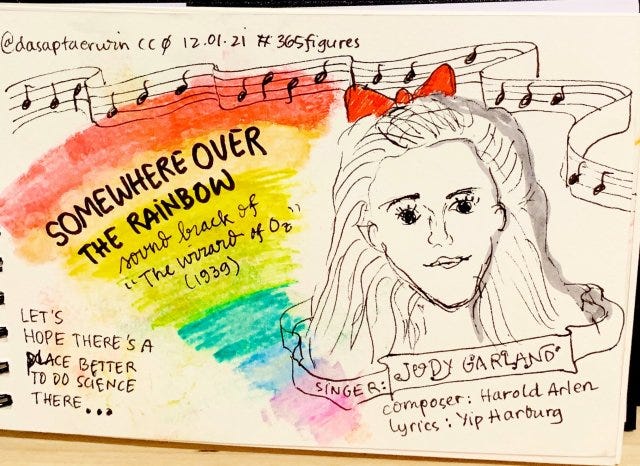 @dasaptaerwin CCØ 12.01.21 #365figures
SOMEWHERE OVER
THE RAINBOW
sound track of
"The wizard of Oz"
(1939)
LET'S
HOPE THERE'S A
PLACE BETTER
TO DO SCIENCE
THERE...
SINGER: JUDY GARLAND
composer: Harold Arlen
lyrics: Yip Harburg